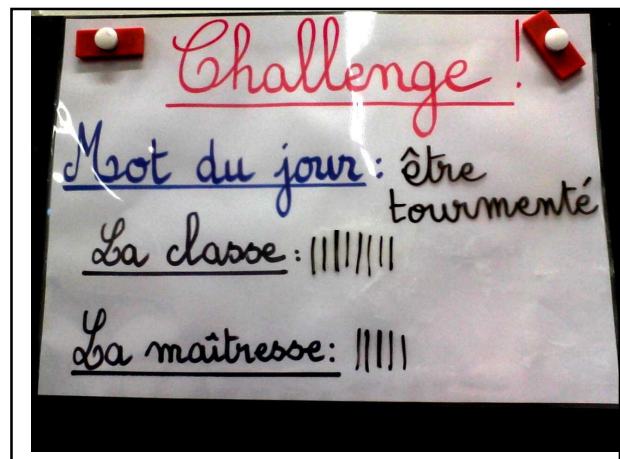 Challenge !
Mot du jour : être
tourmenté
La classe : |||||||||
La maîtresse: |||||